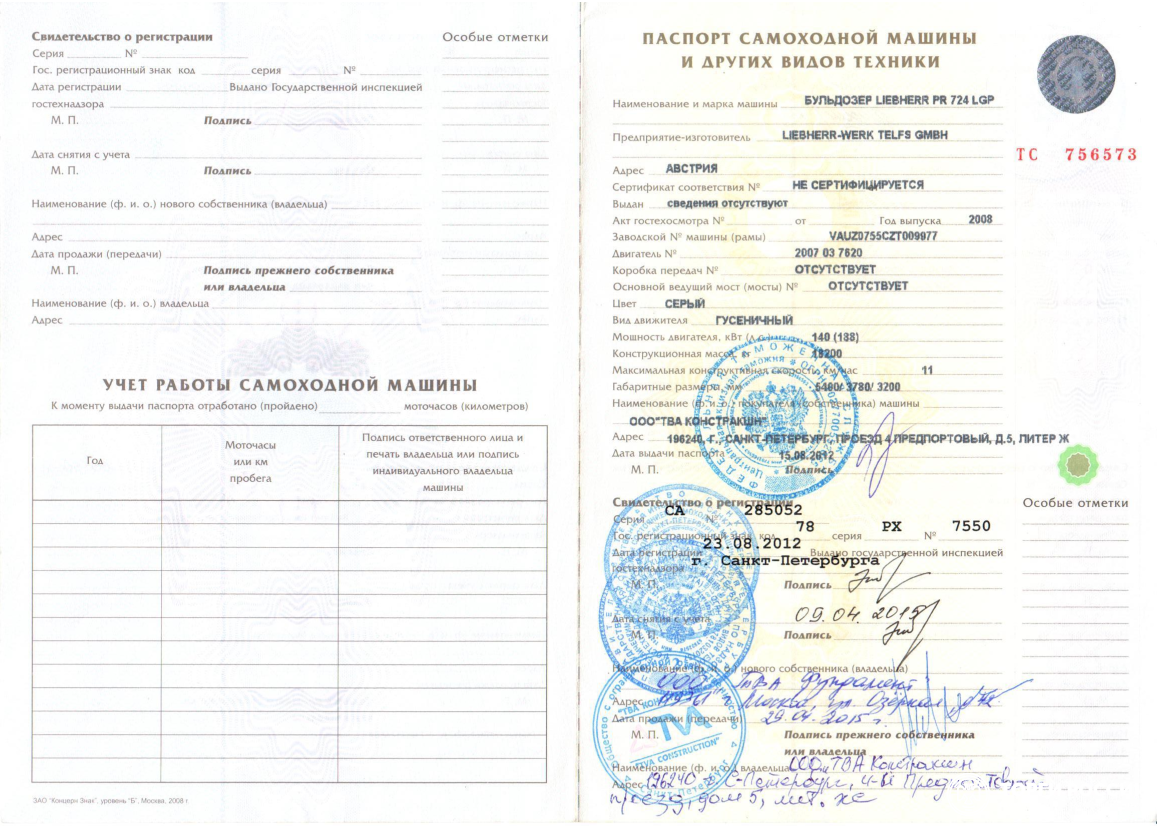 Свидетельство о регистрации
Серия № 
Гос. регистрационный знак код серия №
Дата регистрации Выдано Государственной инспекцией
гостехнадзора
М. П. Подпись
Дата снятия с учета
М. П. Подпись
Наименование (ф. и. о.) нового собственника (владельца)
Адрес
Дата продажи (передачи)
М. П. Подпись прежнего собственника
или владельца
Наименование (ф. и. о.) владельца
Адрес
Особые отметки
УЧЕТ РАБОТЫ САМОХОДНОЙ МАШИНЫ
К моменту выдачи паспорта отработано (пройдено) моточасов (километров)
Год
Моточасы
или км
пробега
Подпись ответственного лица и
печать владельца или подпись
индивидуального владельца
машины
ЗАО "Концерн Знак", уровень "Б", Москва, 2008 г.
ПАСПОРТ САМОХОДНОЙ МАШИНЫ
И ДРУГИХ ВИДОВ ТЕХНИКИ
ТС 756573
Наименование и марка машины БУЛЬДОЗЕР LIEBHERR PR 724 LGP
Предприятие-изготовитель LIEBHERR-WERK TELFS GMBH
Адрес АВСТРИЯ
Сертификат соответствия № НЕ СЕРТИФИЦИРУЕТСЯ
Выдан сведения отсутствуют
Акт гостехосмотра № от Год выпуска 2008
Заводской № машины (рамы) VAUZ0755CZT009977
Двигатель № 2007 03 7620
Коробка передач № ОТСУТСТВУЕТ
Основной ведущий мост (мосты) № ОТСУТСТВУЕТ
Цвет СЕРЫЙ
Вид движителя ГУСЕНИЧНЫЙ
Мощность двигателя, кВт (л.с.) 140 (188)
Конструкционная масса, кг 18200
Максимальная конструктивная скорость, км/час 11
Габаритные размеры, мм 5460/ 3780/ 3200
Наименование (ф. и. о.) покупателя (собственника) машины
ООО"ТВА КОНСТРАКШН"
Адрес 196240, Г., САНКТ-ПЕТЕРБУРГ, ПРОЕЗД 4 ПРЕДПОРТОВЫЙ, Д.5, ЛИТЕР Ж
Дата выдачи паспорта 15.08.2012
М. П. Подпись
Свидетельство о регистрации
Серия СА № 285052
Гос. регистрационный знак код 78 серия РХ № 7550
Дата регистрации 23.08.2012 Выдано государственной инспекцией
гостехнадзора г. Санкт-Петербурга
М. П. Подпись
Дата снятия с учета 09.04.2015
М. П. Подпись
Наименование (ф. и. о.) нового собственника (владельца)
ООО "ТВА Фундамент"
Адрес Москва, ул. Озёрная
Дата продажи (передачи) 29.04.2015 г.
М. П. Подпись прежнего собственника
или владельца
Наименование (ф. и. о.) владельца ООО "ТВА Констракшн
Адрес 196240 г. С-Петербург, 4-ый Предпортовый
проезд, дом 5, лит. же
Особые отметки
"TVA CONSTRUCTION"
TVA